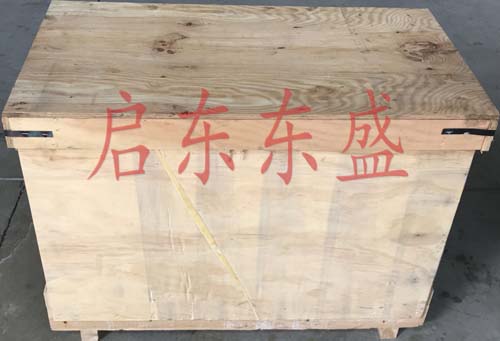 启东东盛